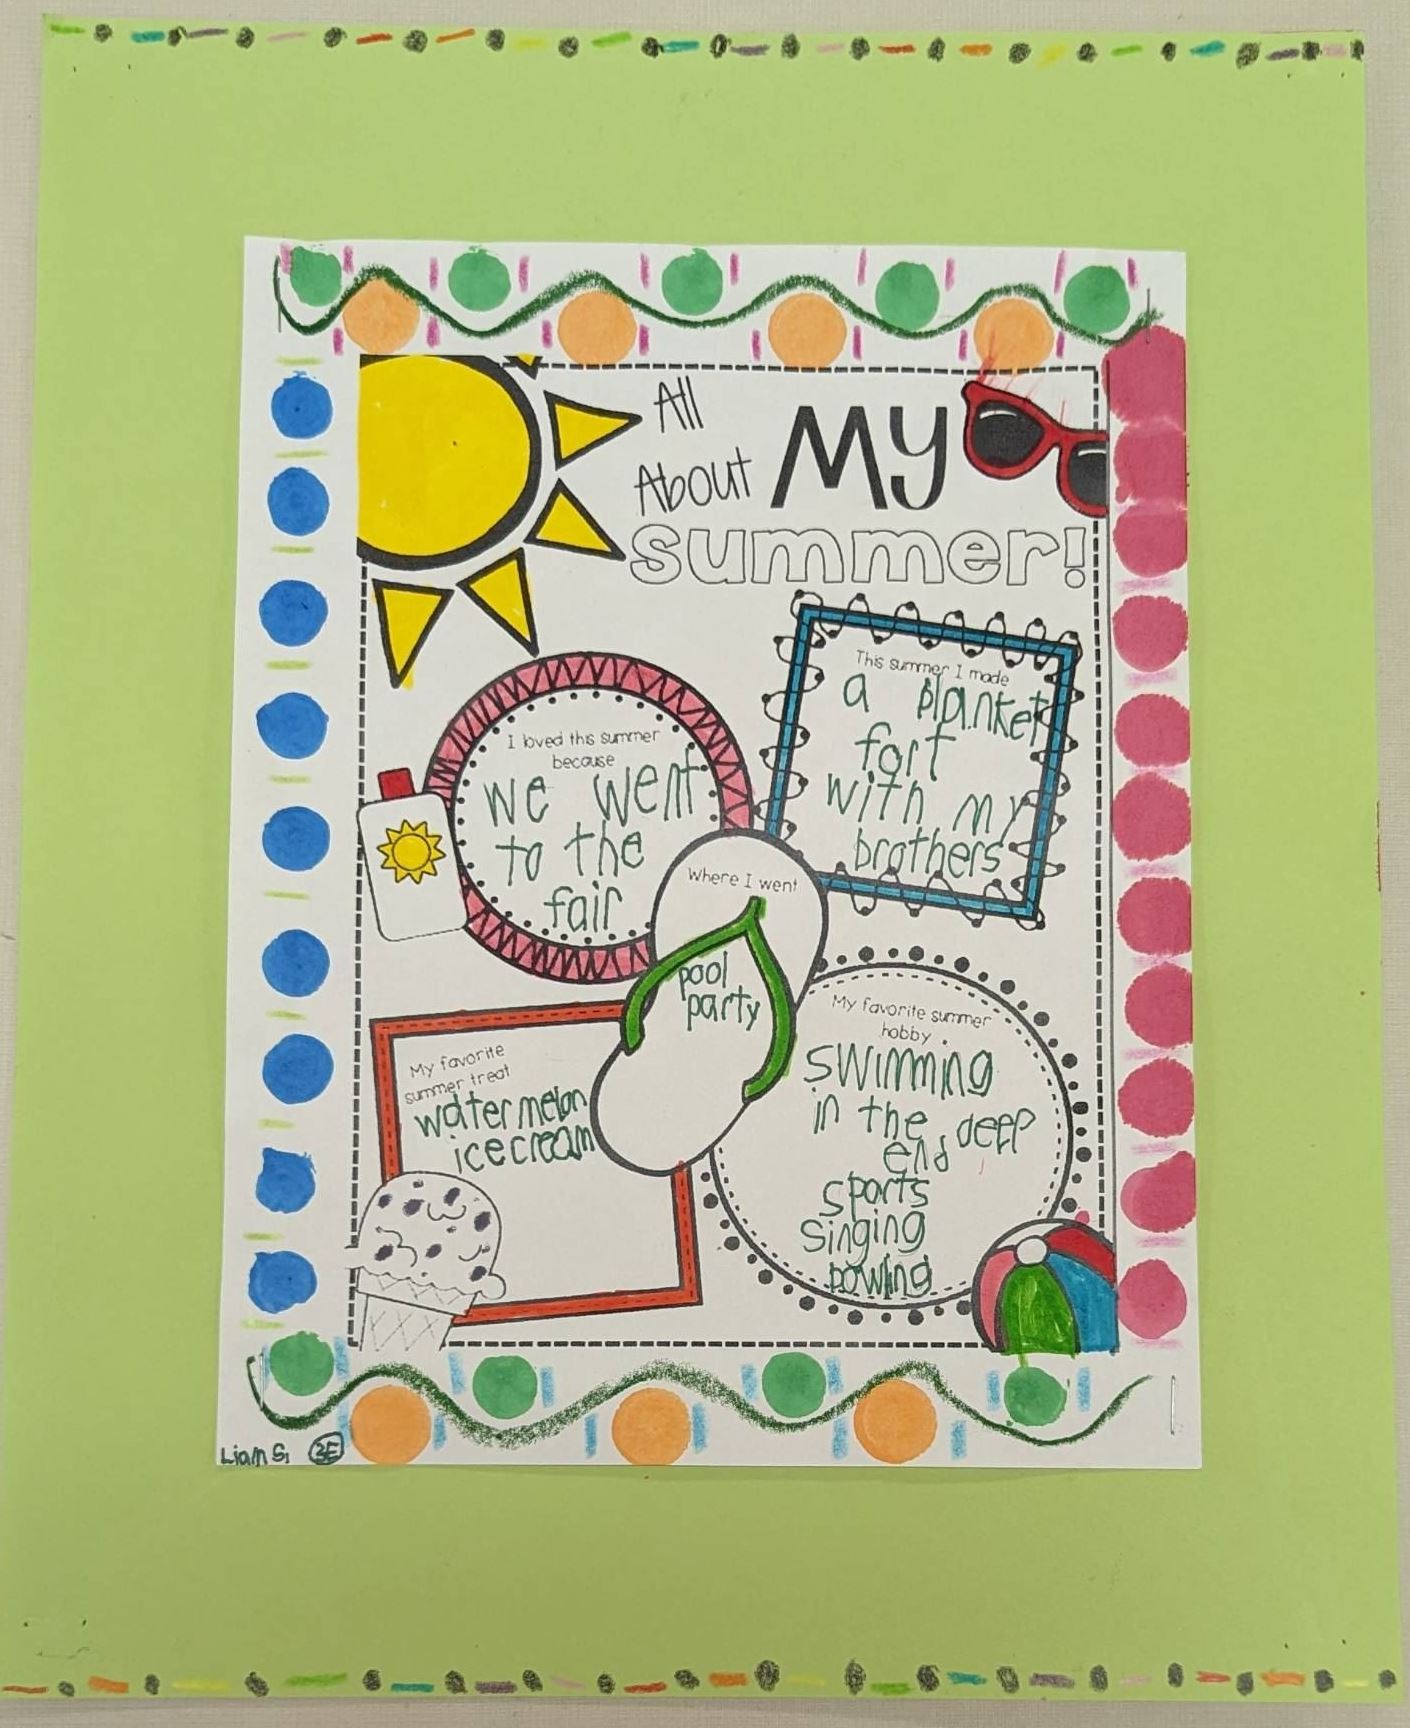 All
About My
summer!
This summer I made
a blanket
fort
with my
brothers
I loved this summer
because
we went
to the
fair
Where I went
pool
party
My favorite
summer treat
watermelon
icecream
My favorite summer
hobby
swimming
in the deep
end
sports
singing
bowling
Liam S. 3E